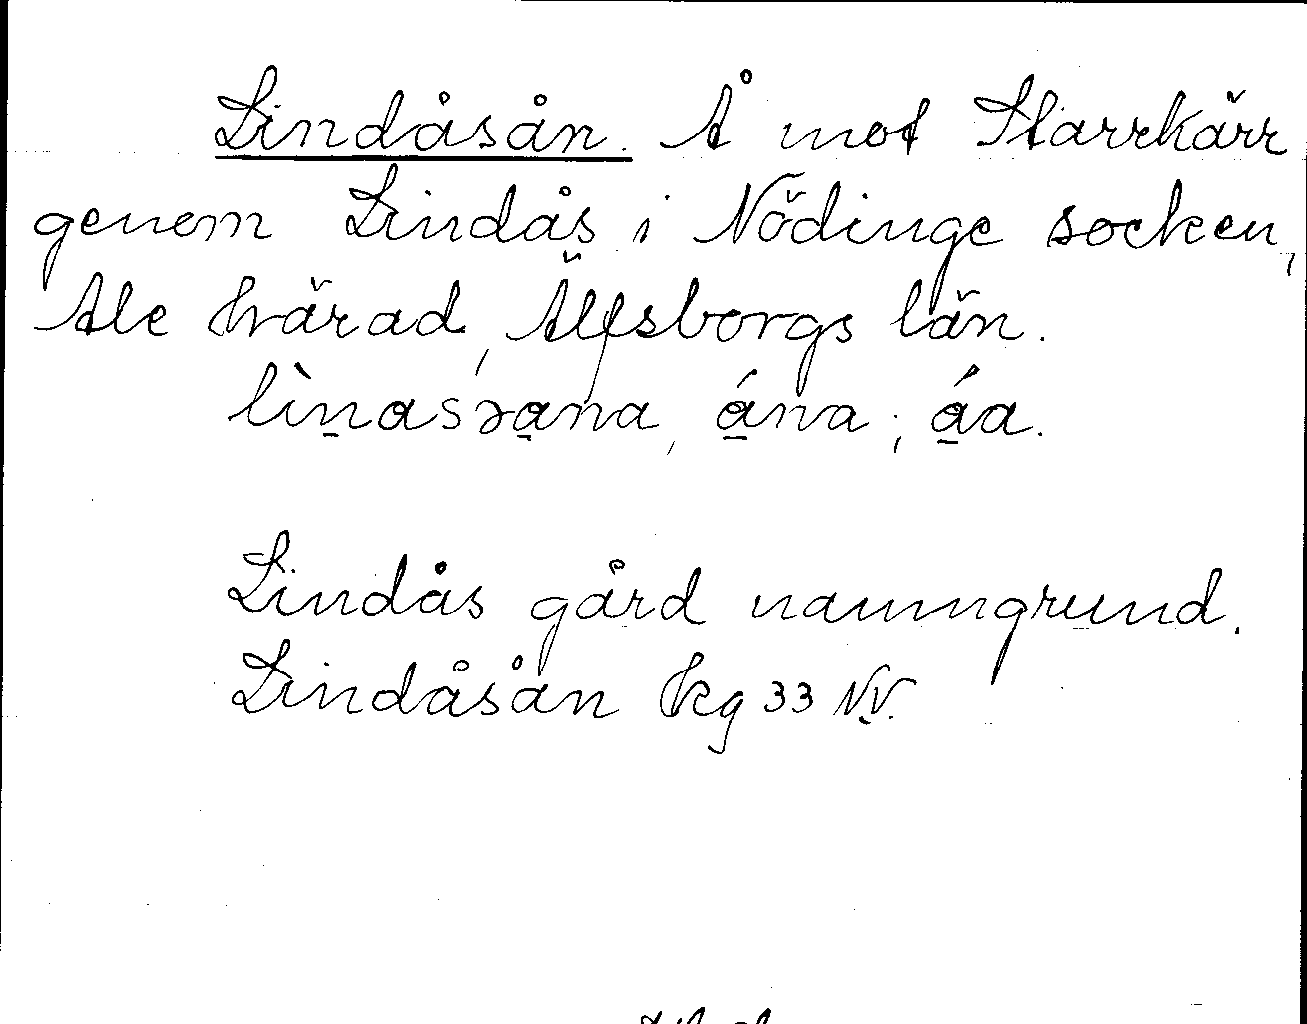 Lindåsån. Å mot Starrkärr
genom Lindås i Nödinge socken,
Ale härad, Älfsborgs län.
Lindås gård namngrund.
Lindåsån kg 33 NV.